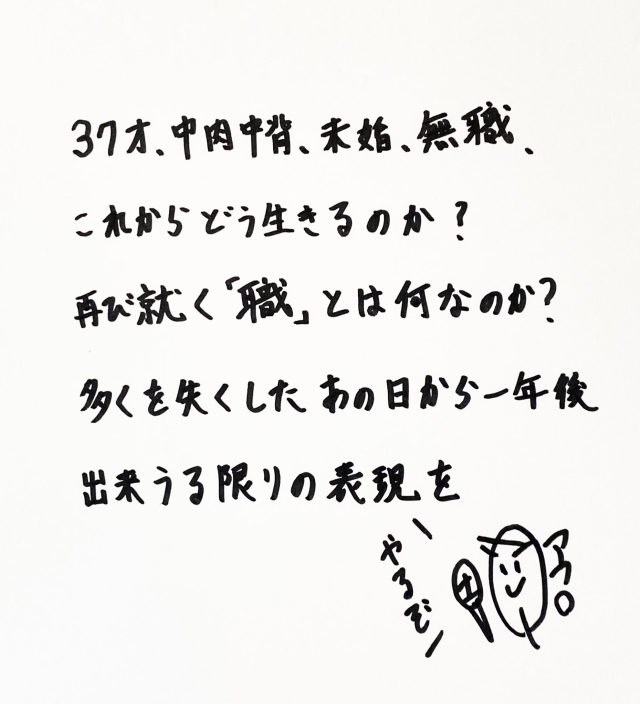 37才、中肉中背、未婚、無職、
これからどう生きるのか?
再び就く「職」とは何なのか?
多くを失くしたあの日から一年後
出来うる限りの表現を
やるぞ
アフロ